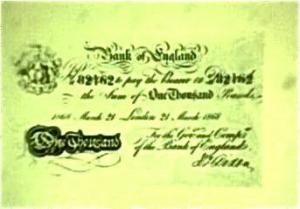 Bank of England
82162 to pay the Bearer on D 82162
the Sum of One Thousand Pounds
1868 March 21 London 21 March 1868
For the Gov.r and Comp.a
One Thousand
of the Bank of England